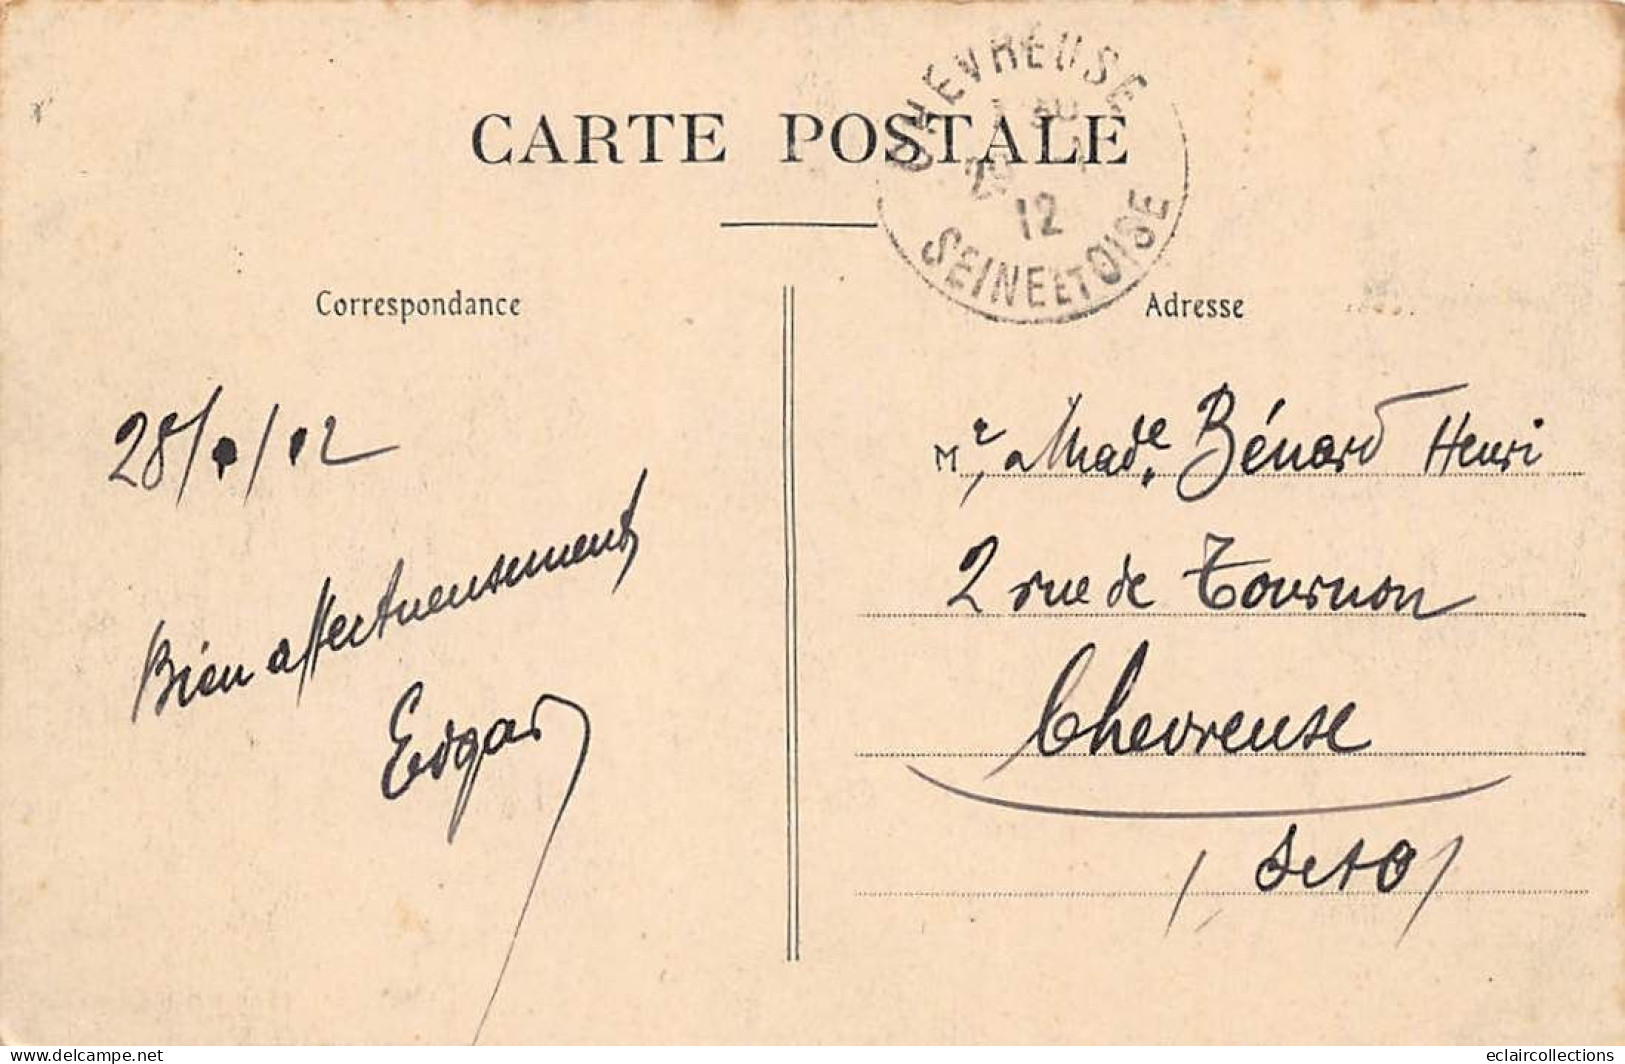 CARTE POSTALE
CHEVREUSE
12
SEINE ET OISE
Correspondance
28/1/12
Bien affectueusement
Edgar
Adresse
Mr, & Made. Bénard Henri
2 rue de Tournon
Chevreuse
(S et O)
delcampe.net
eclaircollections